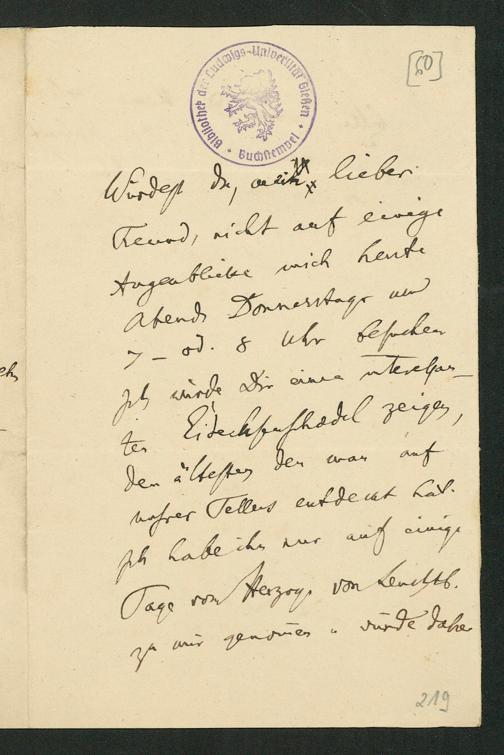 [60]
Bibliothek der Ludwigs-Universität Gießen
Buchstempel
Würdest du, mein lieber
Freund, nicht auf einige
Augenblicke mich heute
Abend Donnerstags um
7 – od. 8 Uhr besuchen
Ich würde Dir einen interessan-
ten Eidechsenschaedel zeigen,
den ältesten den man auf
unsrer Tellus entdeckt hat.
Ich habe ihn nur auf einige
Tage vom Herzoge von Leuchtb.
zu mir genommen u würde daher
219